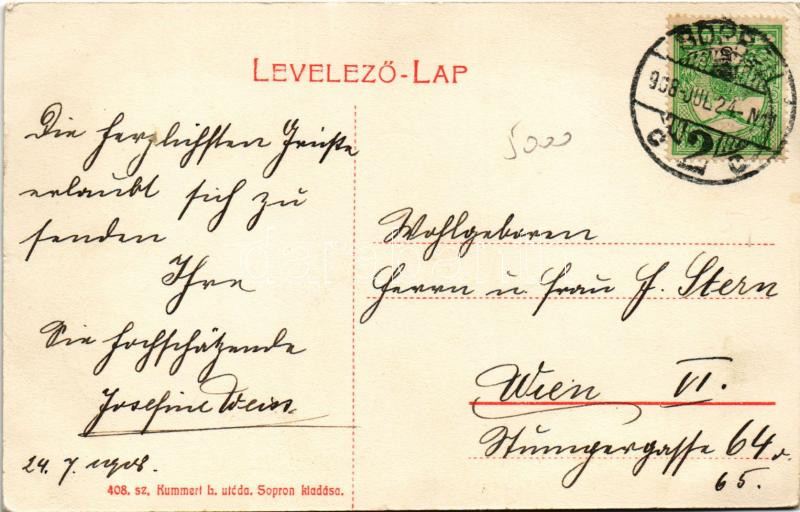 LEVELEZŐ-LAP
908 JUL 24
5000
Die herzlichsten Grüße
erlaubt sich zu
senden
Ihre
Sie hochschätzende
Josefine Weiss
24. 7. 1908.
Wohlgeboren
Herrn u. Frau J. Stern
Wien VI.
Stumpergasse 64 o.
65.
408. sz. Kummert L. utóda. Sopron kiadása.